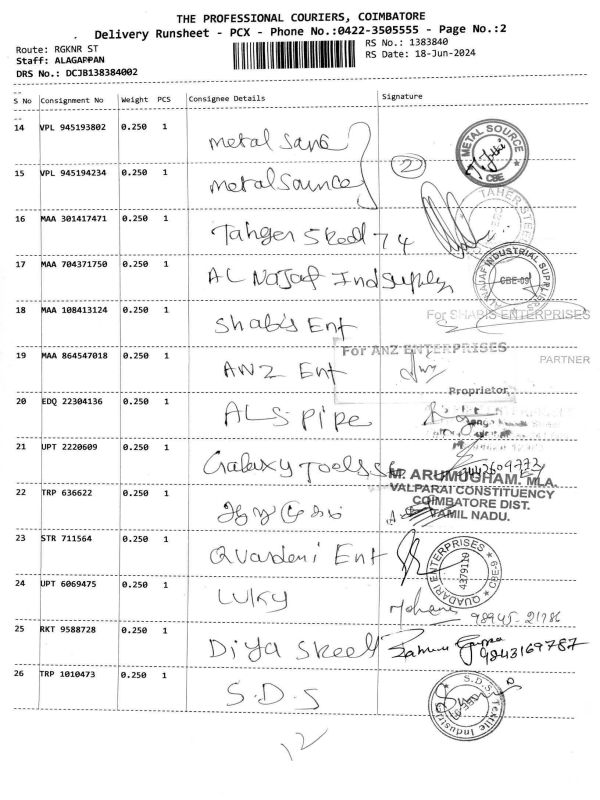 THE PROFESSIONAL COURIERS, COIMBATORE
Delivery Runsheet - PCX - Phone No.:0422-3505555 - Page No.:2
Route: RGKNR ST
RS No.: 1383840
Staff: ALAGAPPAN
RS Date: 18-Jun-2024
DRS No.: DCJB138384002
S No Consignment No Weight PCS Consignee Details Signature
14 VPL 945193802 0.250 1 metal
METAL SOURCE CBE
15 VPL 945194234 0.250 1 metal 2
16 MAA 301417471 0.250 1 74
TAHER STEEL
17 MAA 704371750 0.250 1 AL Najaf Ind supply
AL NAJAF INDUSTRIAL SUPPLIERS CBE-09
18 MAA 108413124 0.250 1 Shabi's Ent
For SHABIS ENTERPRISES
PARTNER
19 MAA 864547018 0.250 1 ANZ Ent
For ANZ ENTERPRISES
Proprietor
20 EDQ 22304136 0.250 1 ALS pipe
21 UPT 2220609 0.250 1 Galaxy Tools
M. ARUMUGHAM. MLA.
VALPARAI CONSTITUENCY
COIMBATORE DIST.
TAMIL NADU.
22 TRP 636622 0.250 1
23 STR 711564 0.250 1 Ent
QUADARI ENTERPRISES CBE-9 4379119
24 UPT 6069475 0.250 1 Luky
98945-21786
25 RKT 9588728 0.250 1 Diya Steel
9843169787
26 TRP 1010473 0.250 1 S.D.S
S.D.S. Textile Industri
12